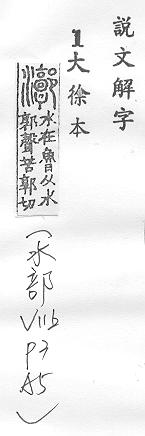 説文解字
1大徐本
㶅水在魯从水
郭聲苦郭切
(水部
VIIb
P3
A5)